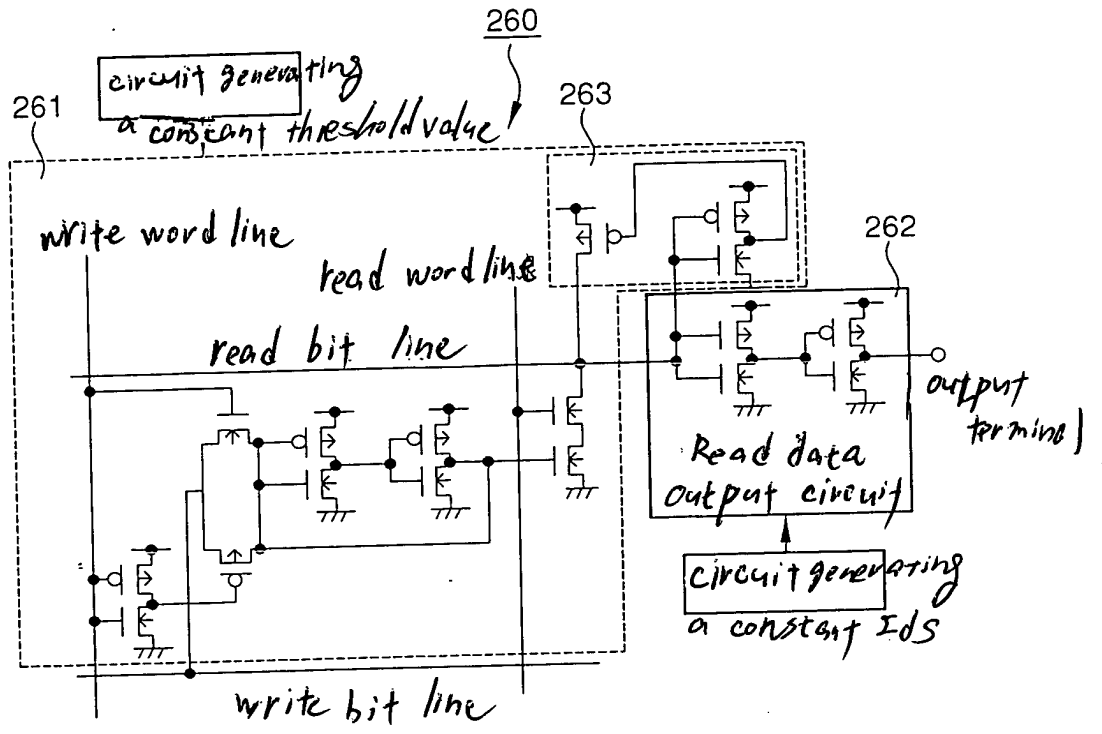 260
circuit generating
a constant threshold value
261
263
write word line
262
read word line
read bit line
output
terminal
Read data
output circuit
circuit generating
a constant Ids
write bit line